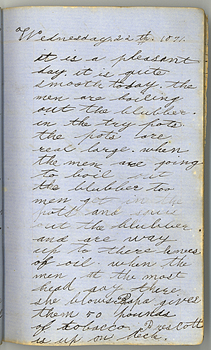 Wednesday, 22th, 1871.
it is a pleasant
day. it is quite
smooth today. the
men are boiling
out the blubber.
in the try pots
the pots are
real large. when
the men are going
to boil out
the blubber too
men get in the
pots and
out the blubber
and are way
up to there knees
of oil. when the
men at the most
head say there
she blows. Papa gives
them 50 pounds
of tobacco. Prescott
is up on deck.